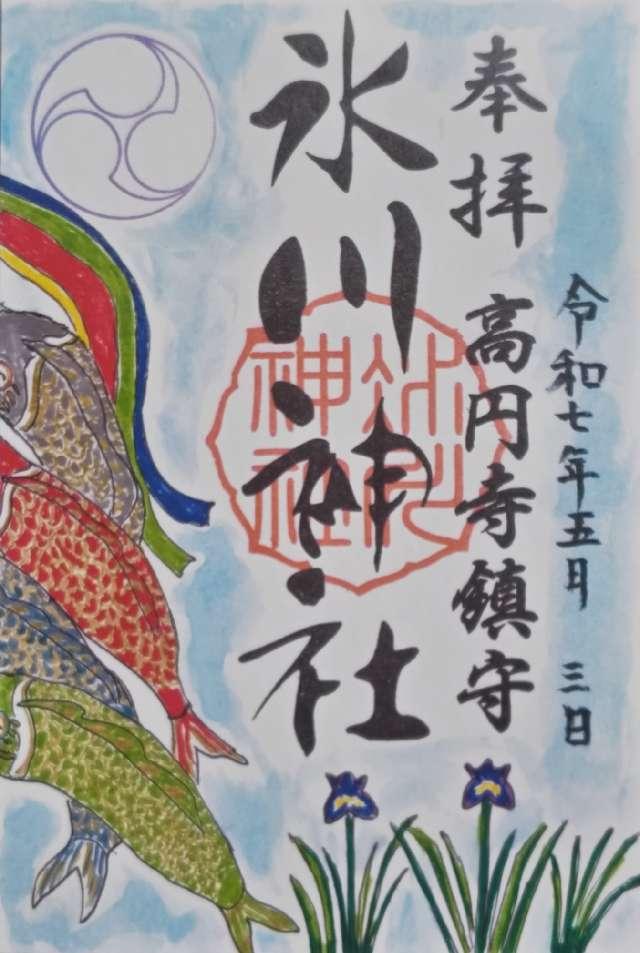 奉拝 高円寺鎮守
令和七年五月 三日
氷川神社
氷川
神社